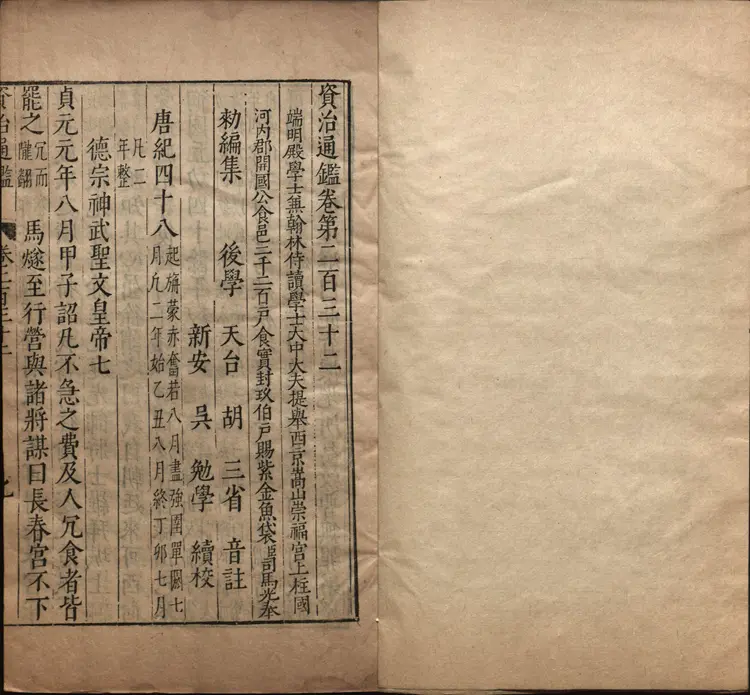 資治通鑑卷第二百三十二
端明殿學士兼翰林侍讀學士大中大夫提舉西京嵩山崇福宮上柱國
河內郡開國公食邑二千二百戶食實封玖伯戶賜紫金魚袋臣司馬光奉
勑編集 後學 天台 胡 三省 音註
新安 吳 勉學 續校
唐紀四十八 起旃蒙赤奮若八月盡強圉單閼七
月凡二年始乙丑八月終丁卯七月
凡二
年整
德宗神武聖文皇帝七
貞元元年八月甲子詔凡不急之費及人冗食者皆
罷之 冗而
隴翻 馬燧至行營與諸將謀曰長春宮不下
資治通鑑 卷二百三十二